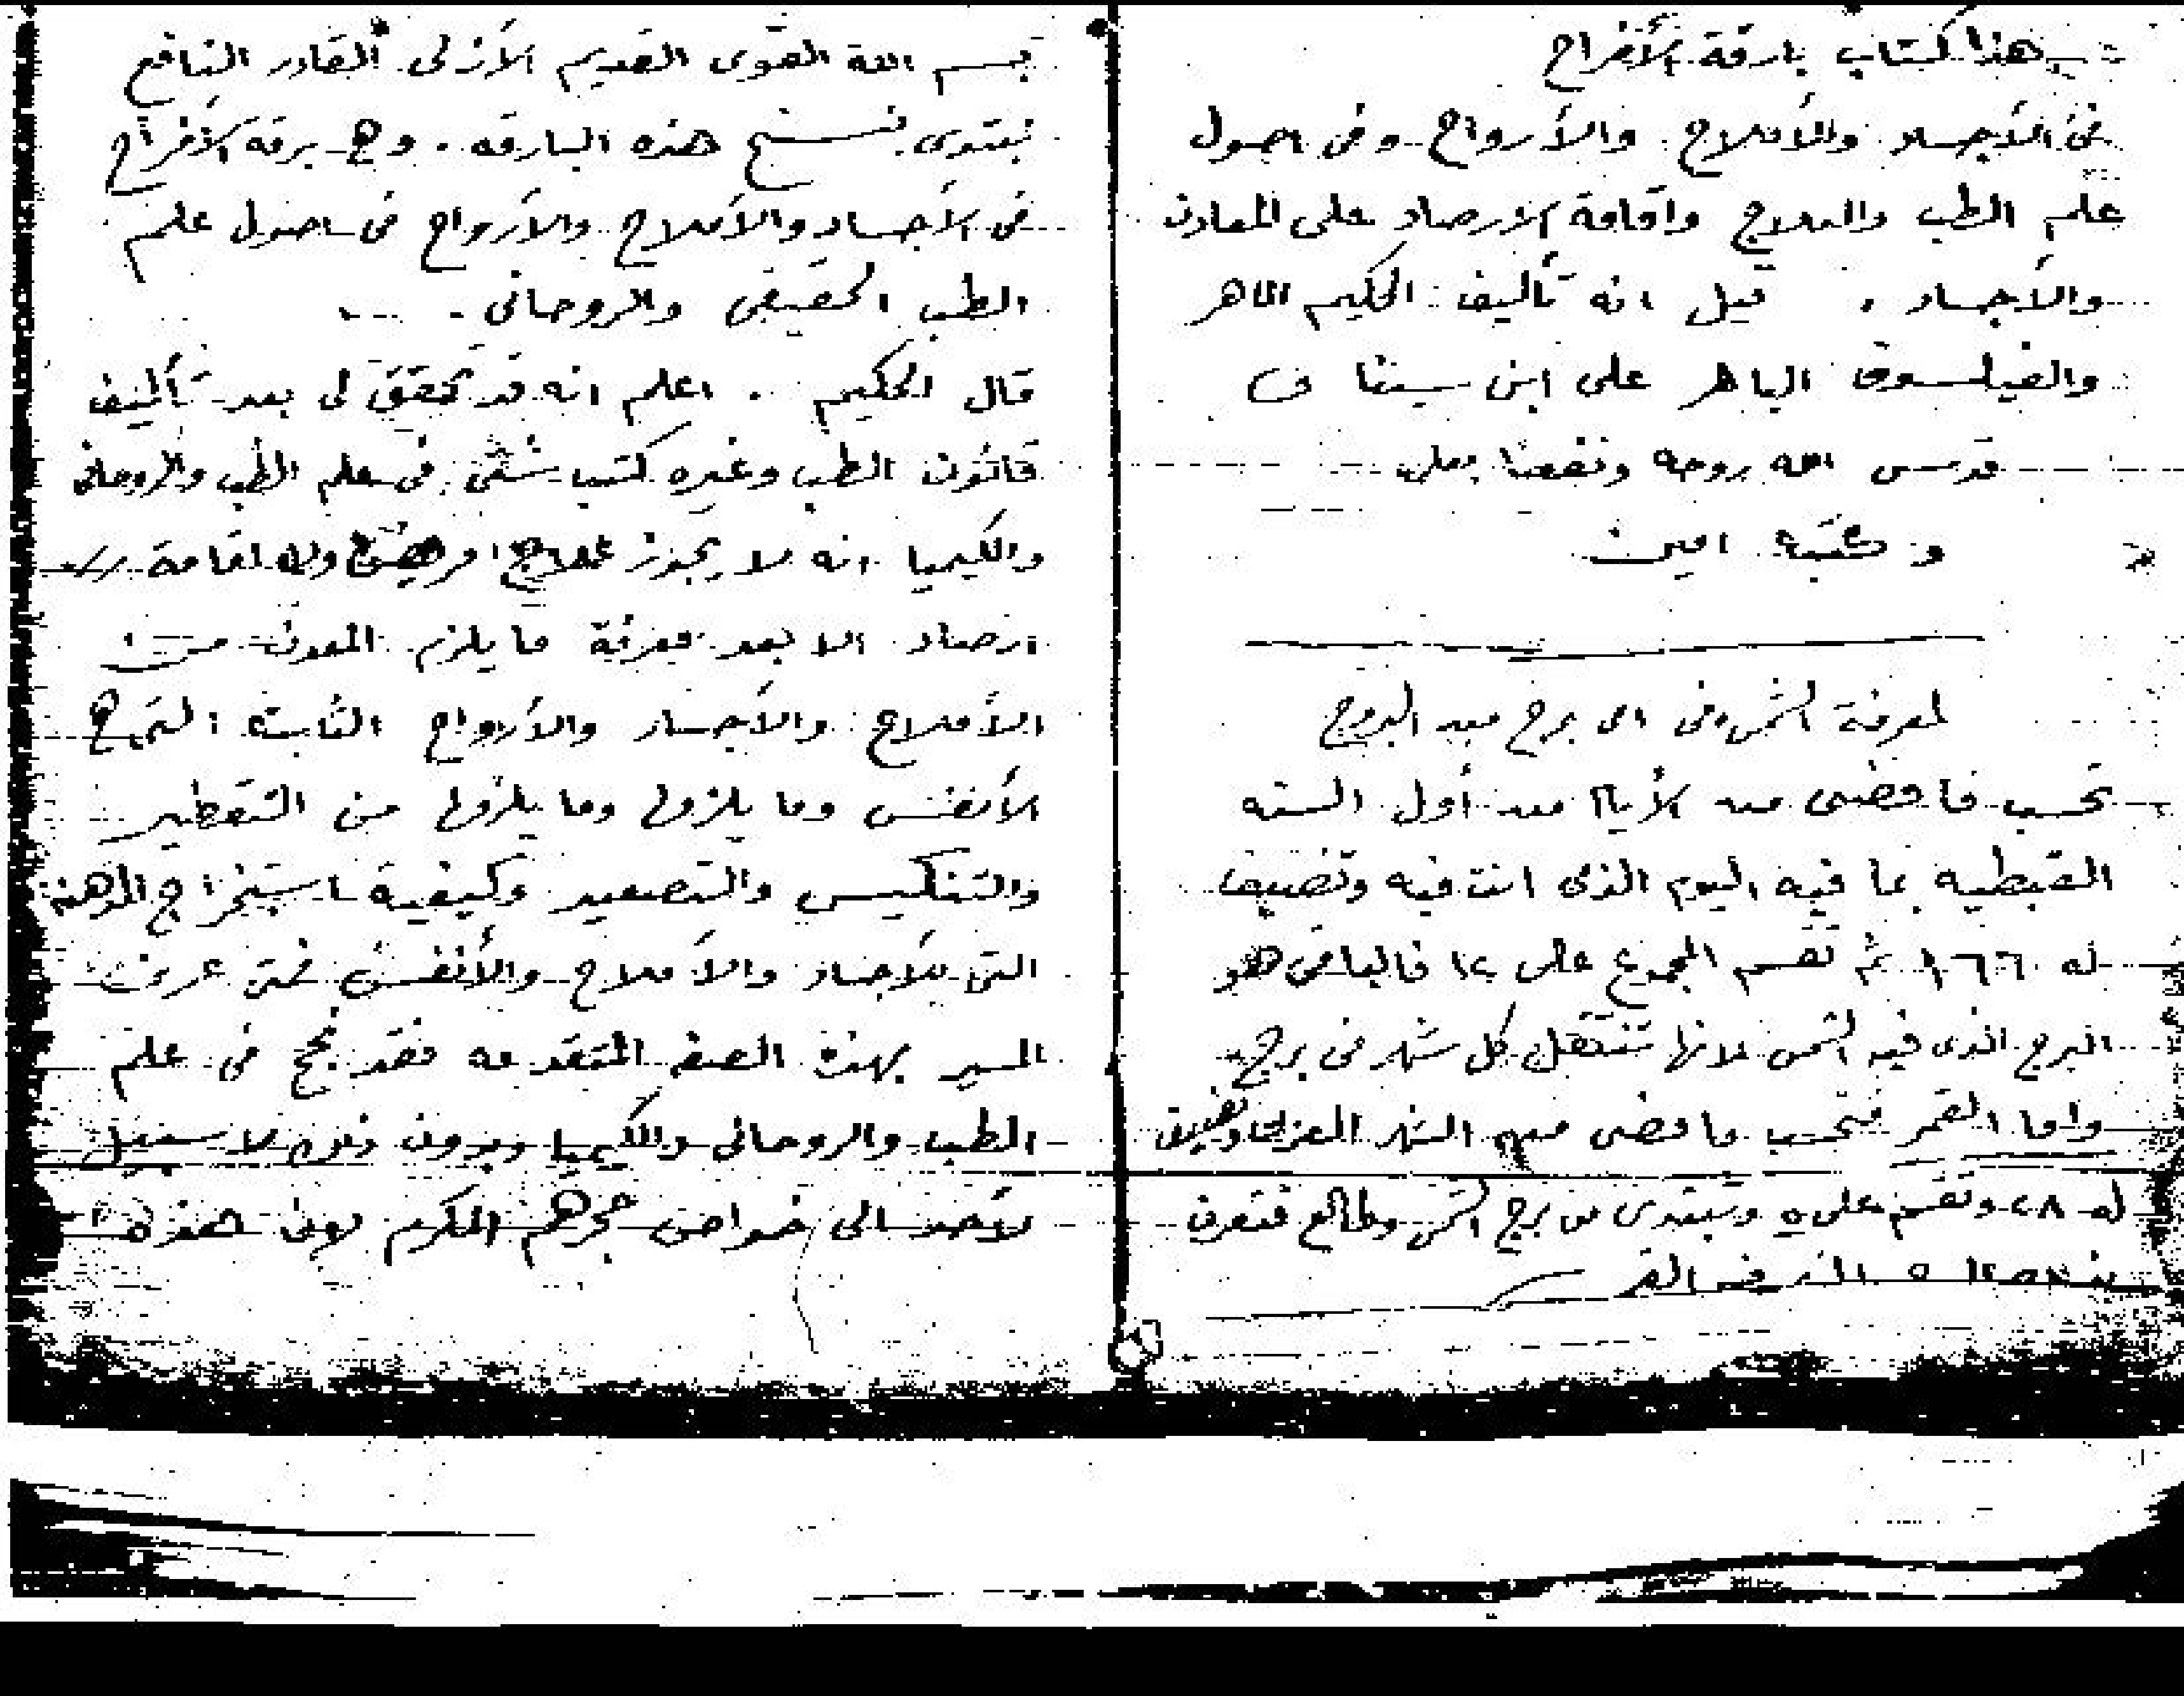 هذا كتاب بارقة الأفراح
فى الأجساد والأملاح والأرواح وفى اصول
علم الطب والعلاج واقامة الارصاد على المعادن
والأجساد . قيل انه تأليف الحكيم الماهر
والفيلسوف الباهر على ابن سينا
قدس الله روحه ونفعنا بعلمه
وكتبه امين
لمعرفة الشمس فى اى برج من البروج
تحسب ما مضى من الأيام من أول السنه
القبطيه بما فيه اليوم الذى انت فيه وتضيف
له ١٦٦ ثم تقسم المجموع على ١٢ فالباقى هو
البرج الذى فيه الشمس لانها تنتقل كل شهر فى برج
واما القمر فتحسب ما مضى من الشهر العربى وتضيف
له ٢٨ وتقسم على ٥ وتبتدى من برج الشمس وطالع فتعرف
القمر
بسم الله القوى القديم الأزلى القادر النافع
نبتدى بنسخ هذه البارقه . وهى برقة الأفراح
فى الأجساد والأملاح والأرواح فى اصول علم
الطب الحقيقى والروحانى .
قال الحكيم . اعلم انه قد تحقق لى بعد تأليف
قانون الطب وغيره كتب شتى فى علم الطب والروحانى
والكيميا انه لا يجوز علاج مريض ولا اقامة
ارصاد الا بعد معرفة ما يلزم المعدن من
الأملاح والأجساد والأرواح الثابته التى هى
الأنفس وما يلزمها وما يلزمها من التقطير
والتنكيس والتصعيد وكيفية استخراج الدهنه
التى للأجساد والأملاح والأنفس فمتى عرف
السير بهذه الصفه المتقدمه فقد نجح فى علم
الطب والروحانى والكيميا وبدون ذلك لا سبيل
لأحد الى خواص حجرهم المكرم لان هذه